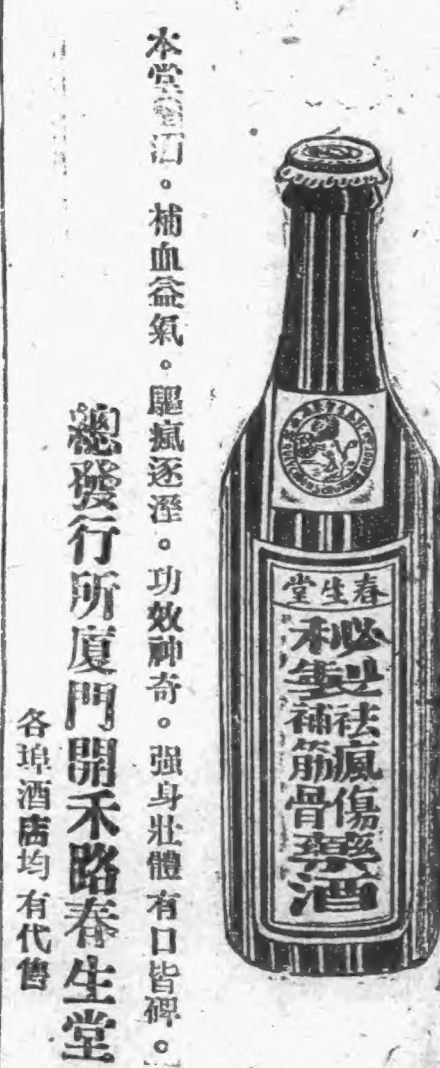 春生堂
秘製
祛瘋傷
補筋骨
藥酒
本堂酒。補血益氣。驅瘋逐溼。功效神奇。强身壯體有口皆碑。
總發行所廈門開禾路春生堂
各埠酒店均有代售